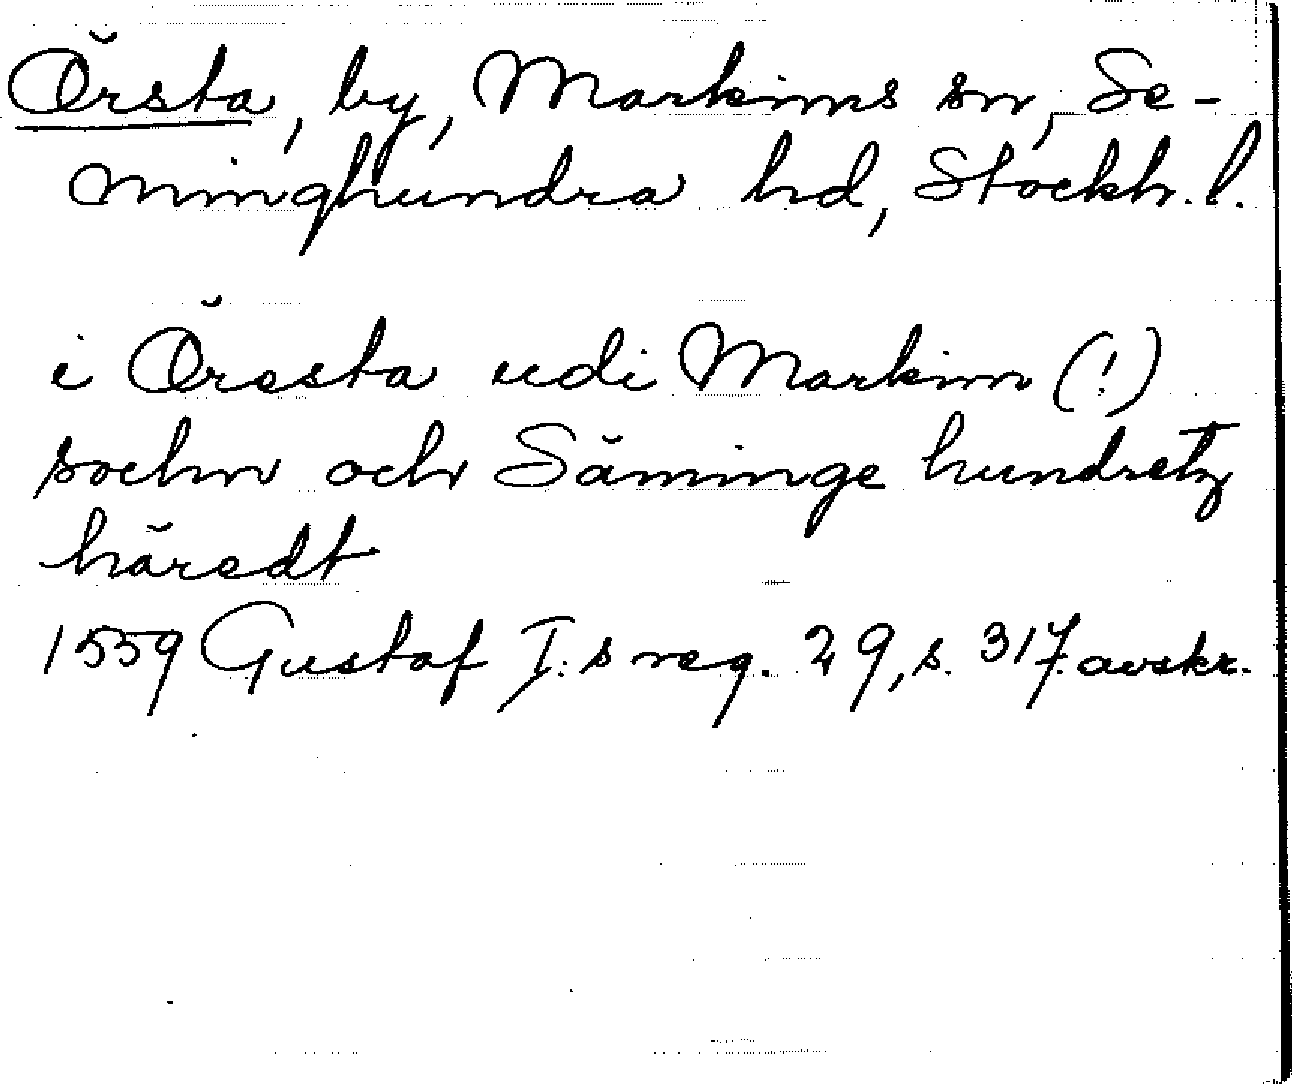 Örsta, by, Markims sn, Se-
minghundra hd, Stockh. l.
i Öresta udi Markim (!)
sochn och Säminge hundretz
häredt
1559 Gustaf I:s reg. 29, s. 317. avskr.